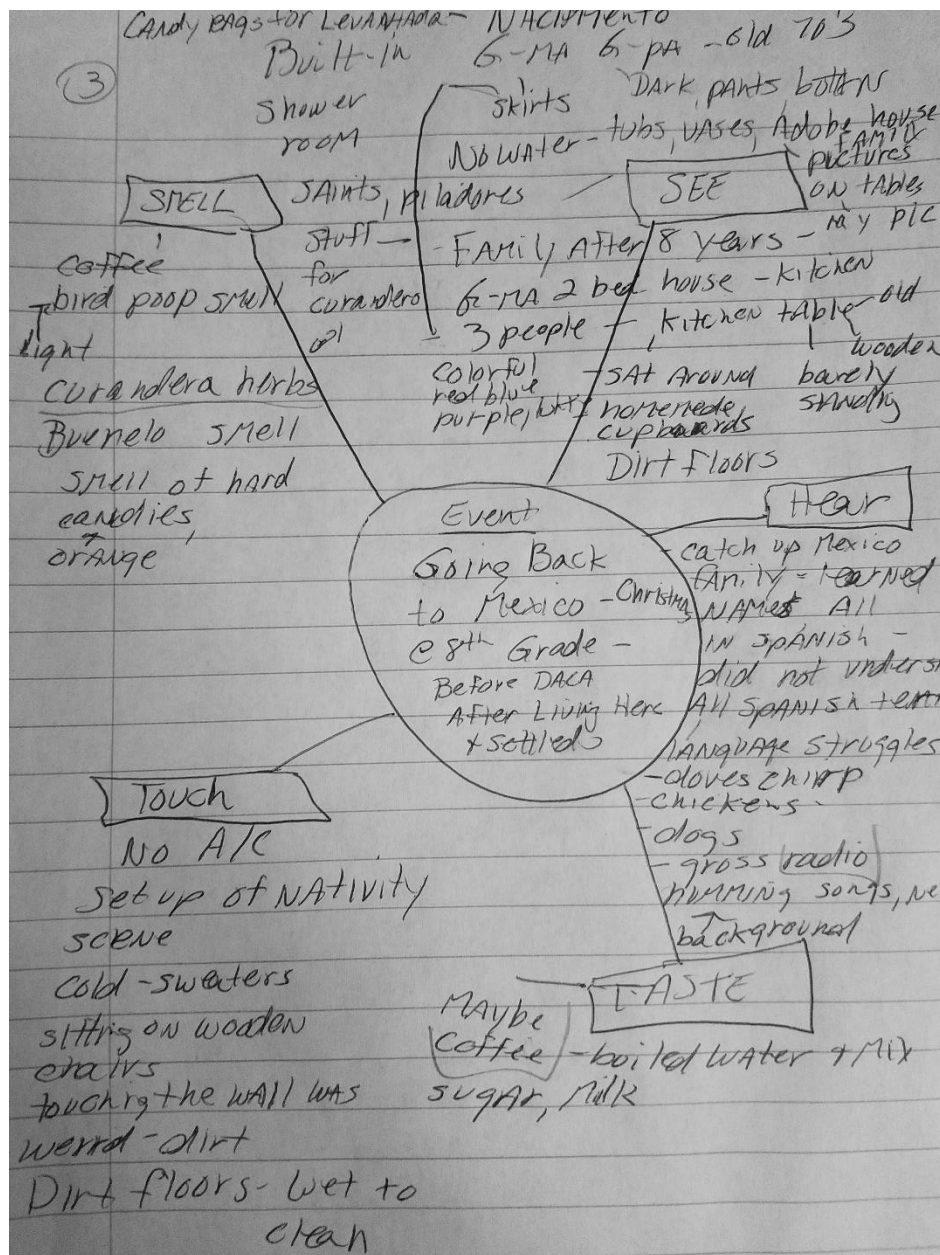 CANdy BAgs for LevANtada - NACiMeNto
Built-in G-MA G-pA - old 70's
3
shower
room
skirts DArk pAnts bottoN
No WAter - tubs, VAses, Adobe house
FAMily
pictures
ON tAbles
MY pic
SMELL
SAints, pilAdores
SEE
stuff
for
curandero
FAMily After 8 years
G-MA 2 bed house - kitcheN
3 people - kitcheN tAble - old
wooden
barely
standing
colorful
red blue
purple,
SAt Around
homemede
cupboards
Dirt floors
coffee
bird poop smell
light
curandera herbs
Buenelo smell
smell of hard
candies,
orANge
Event
Going BAck
to Mexico - Christmas
@ 8th Grade -
Before DACA
After Living Here
+ settled
Hear
- cAtch up Mexico
fAmily - leArNed
NAMes All
IN SpANish -
did not
All SpANish
lANguAge struggles
- doves chirp
- chickens
- dogs
- gross radio
humming songs,
bAckground
Touch
No A/C
set up of NAtivity
sceNe
cold - sweaters
sitting oN wooden
chairs
touching the wAll wAs
werrd - dirt
Dirt floors - wet to
clean
TASTE
MAybe
coffee - boiled wAter + Mix
sugAr, Milk